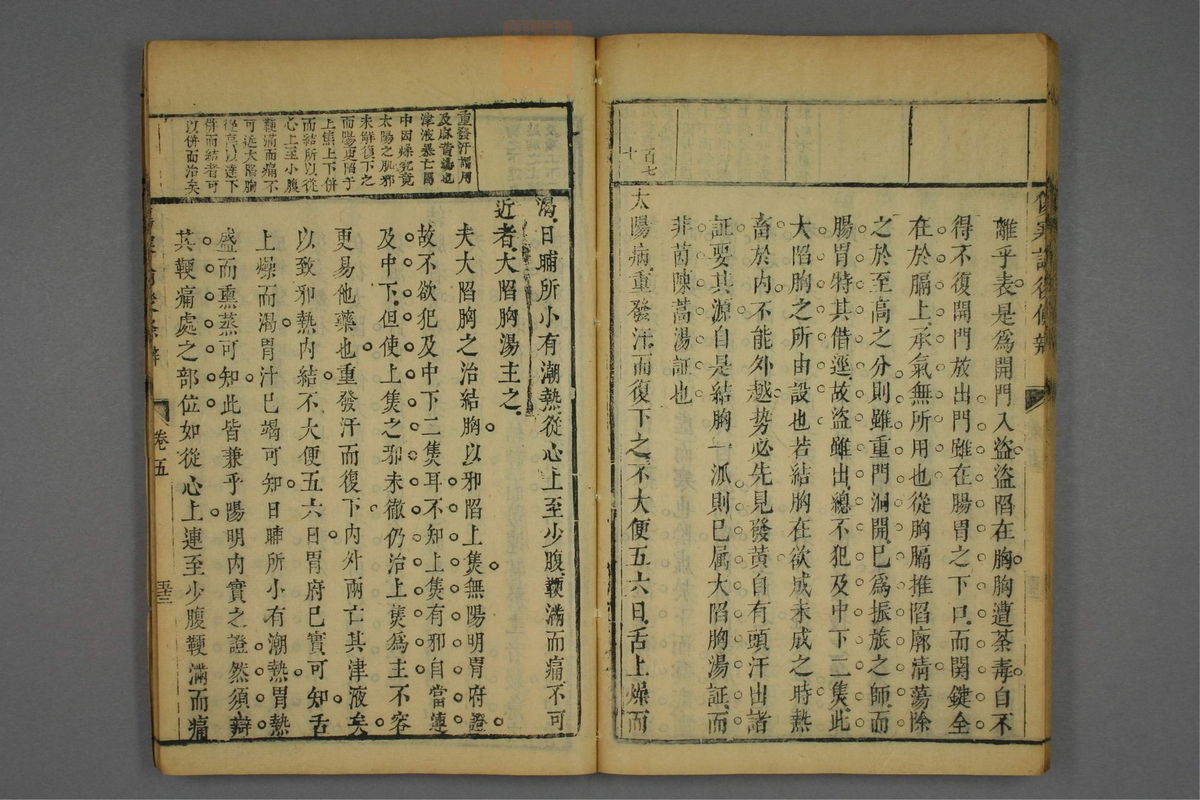 離乎表是爲開門入盜盜陷在胸胸遭荼毒自不
得不復開門放出門雖在腸胃之下口而関鍵全
在於膈上承氣無所用也從胸膈推陷廓清蕩除
之於至高之分則雖重門洞開已爲振旅之師而
腸胃特其借逕故盜雖出總不犯及中下二焦此
大陷胸之所由設也若結胸在欲成未成之時熱
畜於内不能外越势必先見發黄自有頭汗出諸
証要其源自是結胸一派則已属大陷胸湯証而
非茵陳蒿湯証也
百七
十
太陽病重發汗而復下之不大便五六日舌上燥而
重發汗謂用
及麻黄湯也
津液暴亡胃
中因燥究竟
太陽之肌邪
未解復下之
而陽更陷于
上焦上下併
而結所以從
心上至小腹
鞕滿而痛不
可近大陷胸
從高以達下
併而結者可
以併而治矣
渴日晡所小有潮熱從心上至少腹鞕滿而痛不可
近者大陷胸湯主之
夫大陷胸之治結胸以邪陷上焦無陽明胃府證
故不欲犯及中下二焦耳不知上焦有邪自當連
及中下但使上焦之邪未徹仍治上焦爲主不容
更易他藥也重發汗而復下内外兩亡其津液矣
以致邪熱内結不大便五六日胃府已實可知舌
上燥而渴胃汁已竭可知日晡所小有潮熱胃熱
盛而熏蒸可知此皆兼乎陽明内實之證然須辯
其鞕痛處之部位如從心上連至少腹鞕滿而痛
卷五